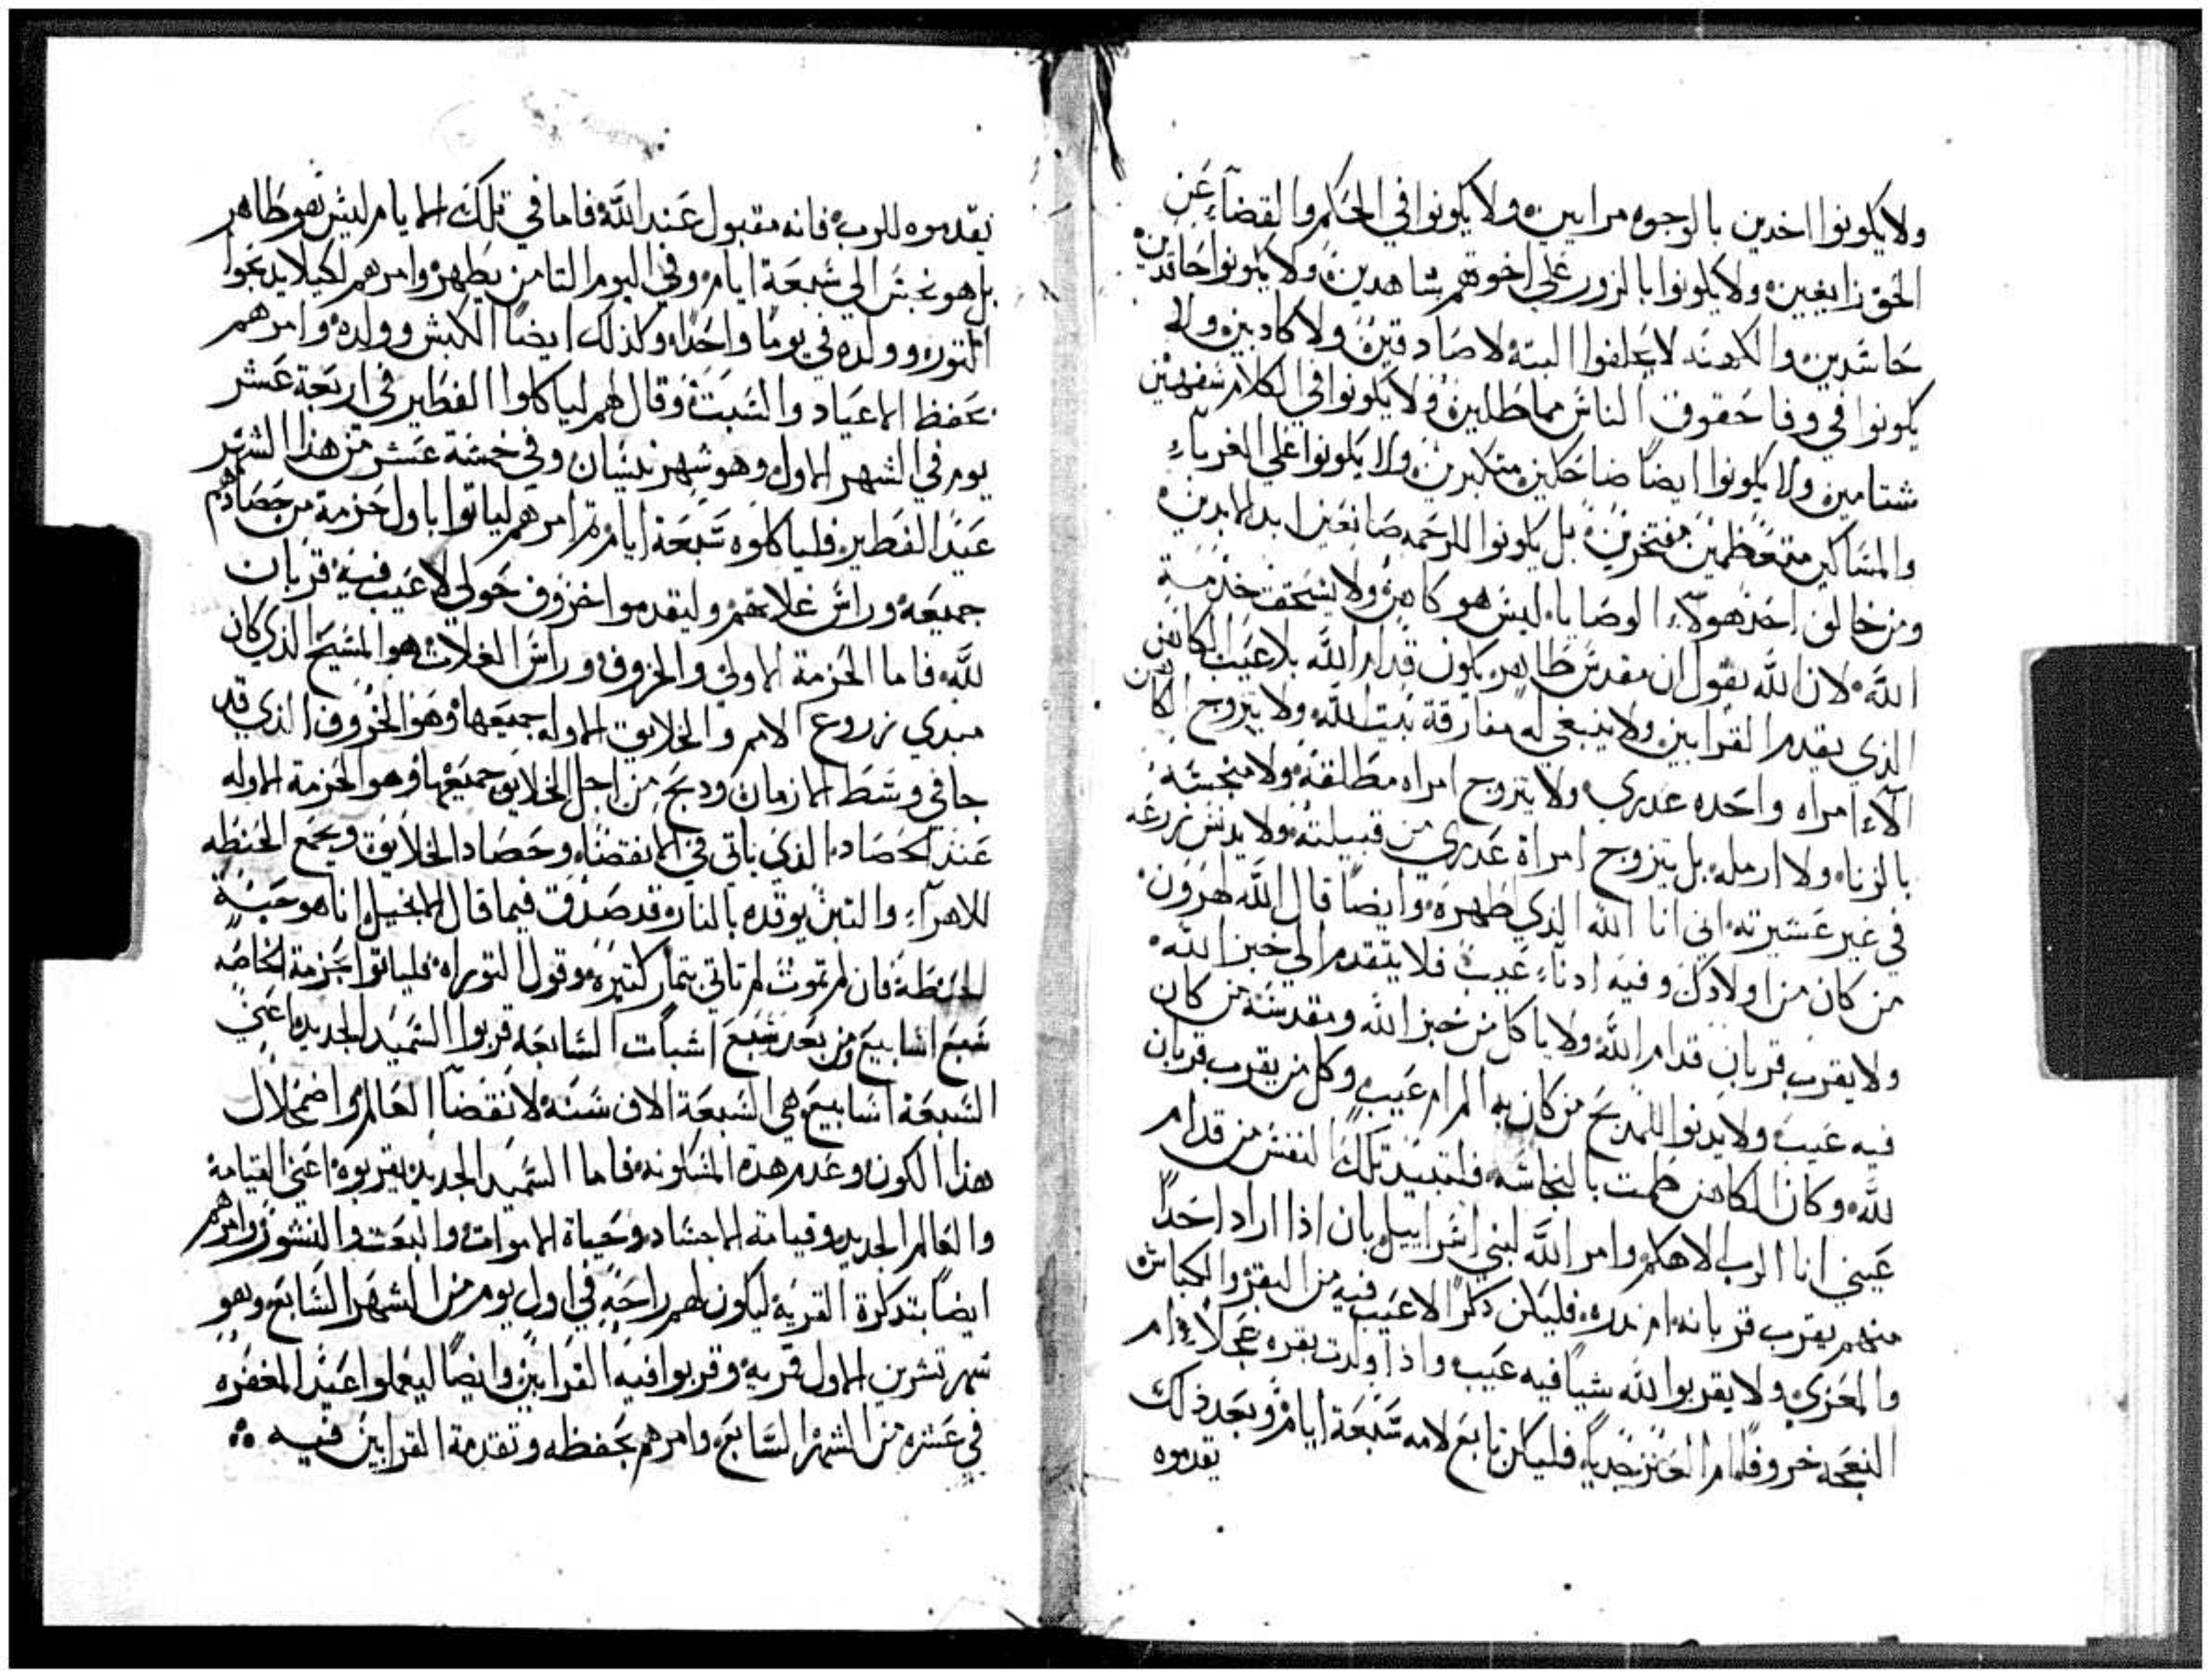 ولا يكونوا اخدين بالوجوه مرايين ولا يكونوا في الحكم والقضاء عن
الحق زايغين ولا يكونوا بالزور علي اخوتهم شاهدين ولا يكونوا حاقدين
حاسدين والكهنه لا يحلفوا البته لا صادقين ولا كادبين ولا
يكونوا في وفا حقوق الناس مماطلين ولا يكونوا في الكلام سفهيين
شتامين ولا يكونوا ايضًا ضاحكين متكبرين ولا يكونوا علي الغرباء
والمساكين متعظمين مفتخرين بل يكونوا للرحمه صانعين ابد الابدين
ومن خالف احد هولاء الوصايا ليس هو كاهن ولا يستحق خدمة
الله لان الله يقول ان مقدس طاهر يكون قدام الله بلا عيب الكاهن
الذي يقدم القرابين ولا ينبغي له مفارقة بيت الله ولا يتزوج الكاهن
الاء امراه واحده عدري ولا يتزوج امراه مطلقة ولا منجسة
بالزنا ولا ارمله بل يتزوج امراة عدري من قبيلته ولا يدنس زرعه
في غير عشيرته اني انا الله الذي طهره وايضًا قال الله لهرون
من كان من اولادك وفيه ادناء عيب فلا يتقدم الي خبز الله
ولا يقرب قربان قدام الله ولا ياكل من خبز الله ومقدسه من كان
فيه عيب ولا يدنوا للمدبح من كان به المرام عيب وكل من يقرب قربان
لله وكان الكاهن طمت بالنجاسه فلتبيد تلك النفس من قدام
عيني انا الرب الاهكم وامر الله لبني اسراييل بان اذا اراد احدًا
منهم يقرب قربانه ام ندره فليكن دكرًا لا عيب فيه من البقر والكباش
والمعزي ولا يقربوا لله شيا فيه عيب واذا ولدت بقره عجلاء ام
النعجه خروفًا ام العنز جديا فليكن تابع لامه سبعة ايام وبعد ذلك
يقدموه
يقدموه للرب فانه مقبول عند الله فاما في تلك الايام ليس هو طاهر
بل هو نجس الي سبعة ايام وفي اليوم التامن يطهر وامرهم لكيلا يدبحوا
التور وولده في يومًا واحدا وكذلك ايضًا الكبش وولده وامرهم
بحفظ الاعياد والسبت وقال لهم لياكلوا الفطير في اربعة عشر
يوم في الشهر الاول وهو شهر نيسان وفي خمسة عشر من هذا الشهر
عيد الفطير فلياكلوه سبعة ايام تم امرهم لياتوا باول حزمة من حصادهم
جميعه وراس غلاتهم وليقدموا خروف حولي لا عيب فيه قربان
لله فاما الحزمة الاولي والخروف وراس الغلات هو المسيح الذي كان
مبدي زروع الامم والخلايق الاوله جميعها وهو الخروف الذي قد
جا في وسط الازمان ودبح من اجل الخلايق جميعها وهو الحزمة الاوله
عند الحصاد الذي ياتي في الانقضاء وحصاد الخلايق ويجمع الحنطه
للاهراء والتبن يوقده بالنار وقد صدق فيما قال الانجيل انا هو حبة
الحنطة فان لم تموت لم تاتي بتمار كتيره وقول التوراه فلياتوا بحزمة الخاصه
سبع اسابيع ومن بعد سبع اسبات السابعه قربوا السميد الجديد اعني
السبعة اسابيع هي السبعة الاف سنة لانقضا العالم واضمحلال
هذا الكون وعدم هدة المسكونه فاما السميد الجديد يقربوه اعني القيامة
والعالم الجديد وقيامة الاجساد وحياة الاموات والبعت والنشور وامرهم
ايضًا بتدكرة القرية ليكون لهم راحةٍ في اول يوم من الشهر السابع وهو
شهر تشرين الاول قرية وقربوا فيه القرابين وايضًا ليعملوا عيد المغفره
في عشره من الشهر السابع وامرهم بحفظه وتقدمة القرابين فيه